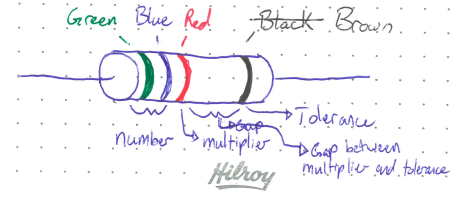 Green Blue Red Black Brown
Tolerance
Gap
number multiplier Gap between
multiplier and tolerance
Hilroy